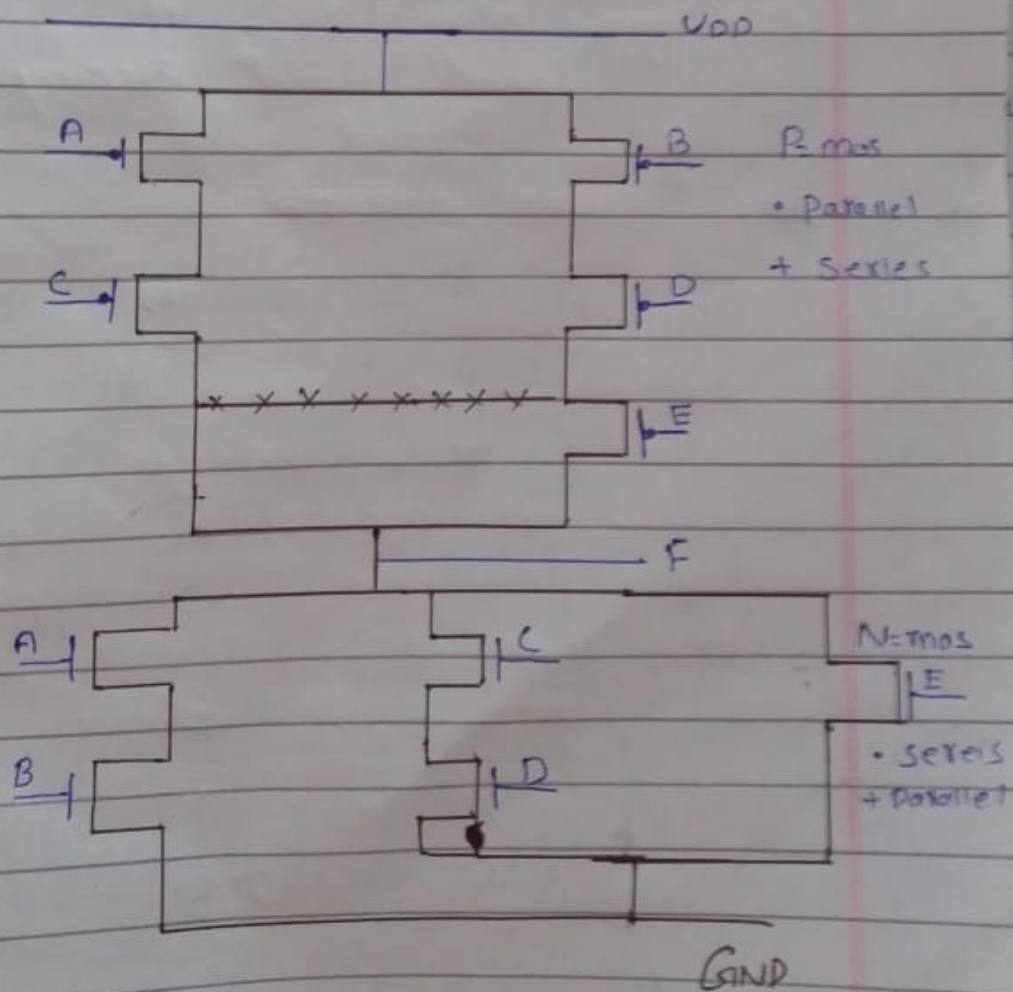 VDD
A
B
P-mos
• Parallel
+ Series
C
D
E
F
A
C
N-mos
E
B
D
• sereis
+ Parallel
GND